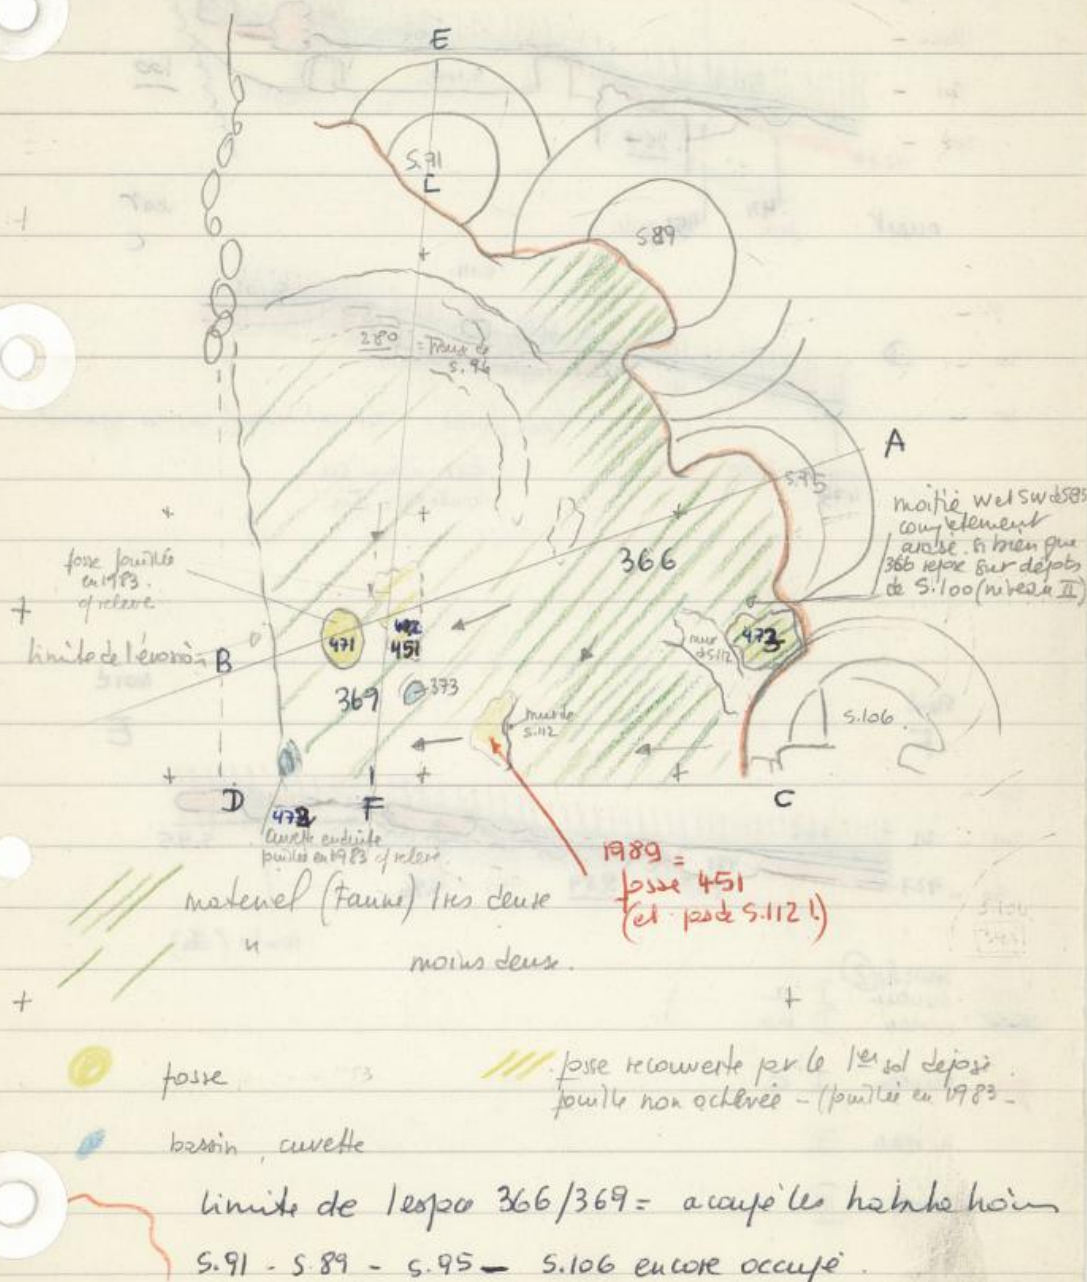 E
S.71
L
S89
280 = mur de
S.96
A
S.95
moitié W et SW de S95
complètement
arasé. si bien que
366 repose sur dépôts
de S.100 (niveau II)
366
fosse fouillée
en 1983.
cf relevé
limite de l'érosion
B
471
451
473
mur
de S.112
369
373
mur de
S.112
S.106
D
F
C
Cuvette enduite
fouillée en 1983 cf relevé.
1989 =
fosse 451
(et pas de S.112 !)
materiel (Faune) très dense
"
moins dense.
fosse
fosse recouverte par le 1er sol déposé.
fouille non achevée - (fouillée en 1983 -
bassin, cuvette
limite de l'espace 366/369 =
S.91 - S.89 - S.95 - S.106 encore occupé.